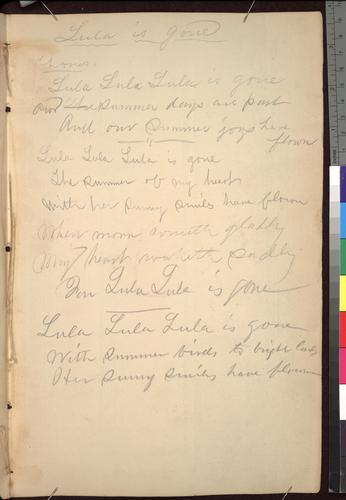 Lula is gone
Chorus.
Lula Lula Lula is gone
And the summer days are past
And our summer joys have
flown
Lula Lula Lula is gone
The summer of my heart
With her sunny smiles have flown
When morn cometh gladly
My heart waketh sadly
For Lula Lula is gone
Lula Lula Lula is gone
With summer birds to bright lands
Her sunny smiles have flown